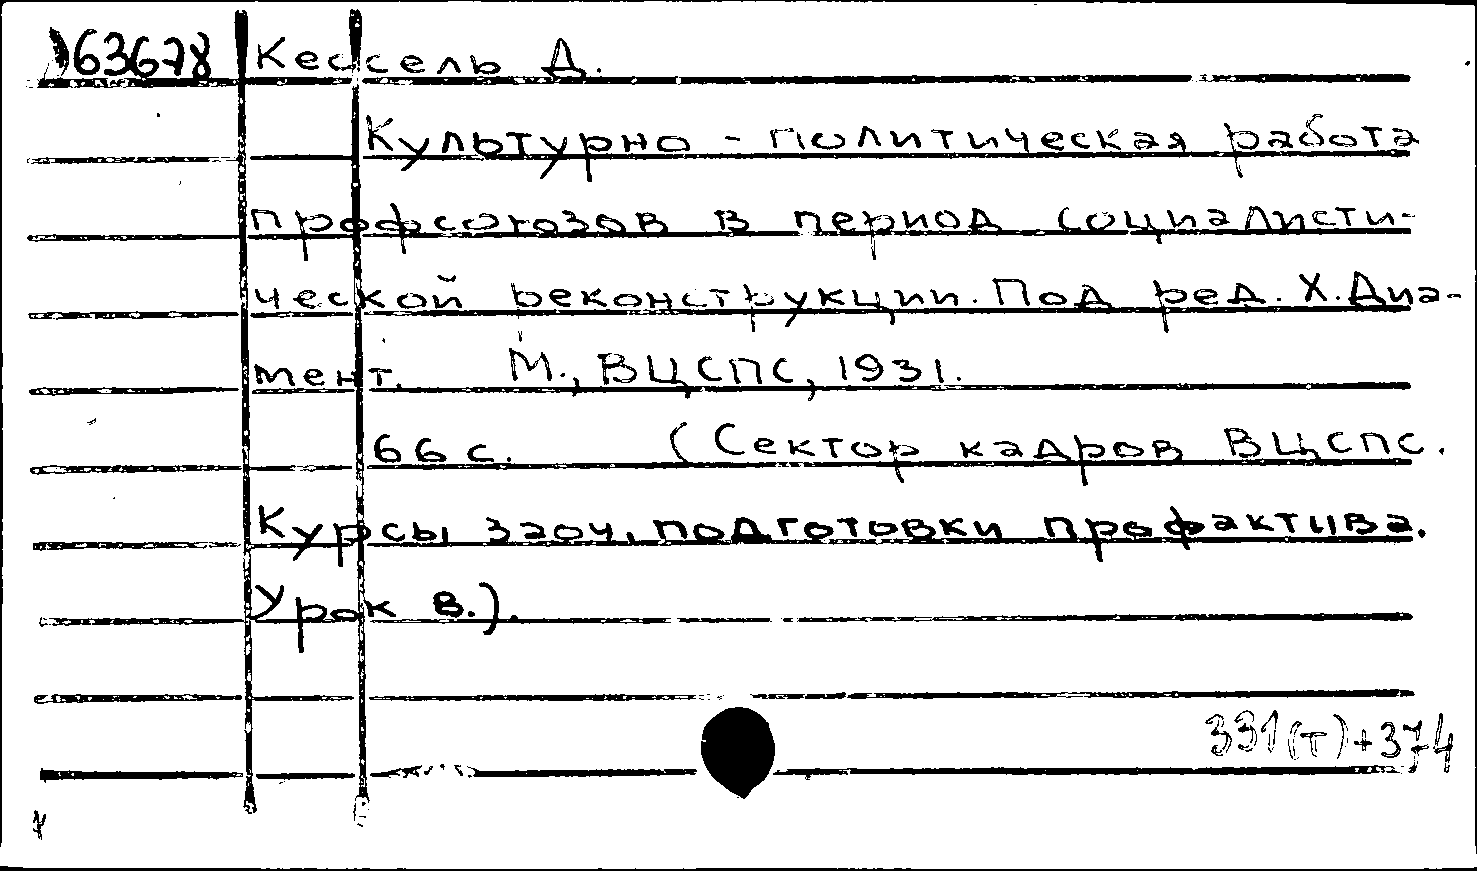 63678 Кессель Д.
Культурно - политическая работа
профсоюзов в период социалисти-
ческой реконструкции. Под ред. Х. Диа-
мент. М., ВЦСПС, 1931.
66 с. (Сектор кадров ВЦСПС.
Курсы заоч. подготовки профактива.
Урок 8.).
331(т)+374